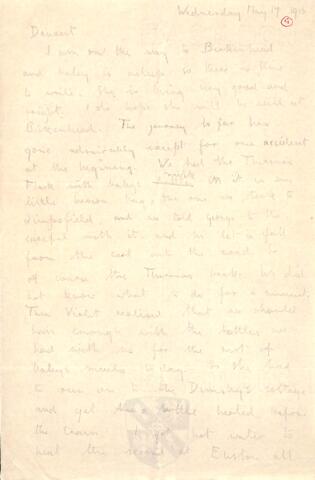 Wednesday May 19 191
4
Dearest
I am on the way to Birkenhead
and baby is asleep so there is time
to write. She is being very good and
I do hope she will be well at
Birkenhead. The journey so far has
gone admirably except for one accident
at the beginning. We had the Thermos
Flask with baby's in it in our
little brown bag, the one we took to
and we told George to be
careful with it, and he let it fall
from the cart onto the road. So
of course the Thermos broke. We did
not know what to do for a moment.
Then Violet realised that we should
have enough with the bottles we
had with us for the rest of
baby's meals today. So she had
to run on to the cottage
and get the bottle heated before
the train. I got hot water to
heat the second at Euston all